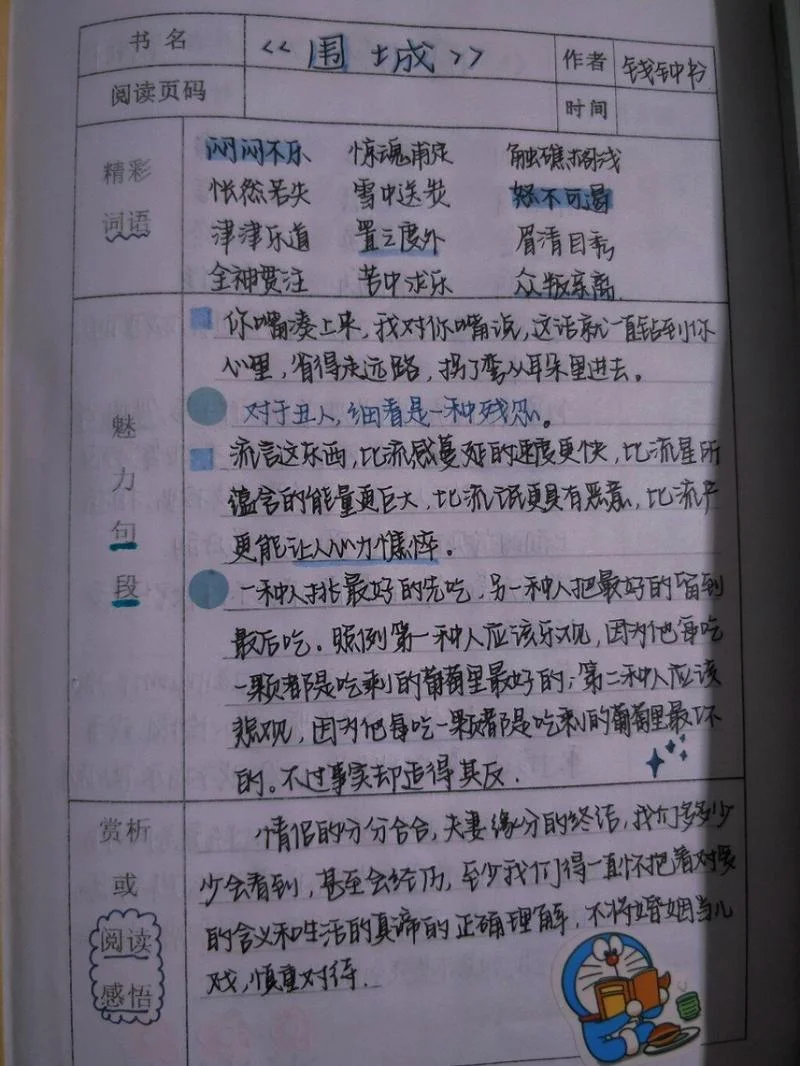 书名 《围城》 作者 钱钟书
阅读页码 时间
精彩
词语
闷闷不乐 惊魂甫定 触礁搁浅
怅然若失 雪中送炭 怒不可遏
津津乐道 置之度外 眉清目秀
全神贯注 苦中求乐 众叛亲离
魅
力
句
段
你嘴凑上来，我对你嘴说，这话就一直钻到你
心里，省得走远路，拐了弯从耳朵里进去。
对于丑人，细看是一种残忍。
流言这东西，比流感蔓延的速度更快，比流星所
蕴含的能量更巨大，比流氓更具有恶意，比流产
更能让人心力憔悴。
一种人挑最好的先吃，另一种人把最好的留到
最后吃。照例第一种人应该乐观，因为他每吃
一颗都是吃剩的葡萄里最好的；第二种人应该
悲观，因为他每吃一颗都是吃剩的葡萄里最坏
的。不过事实却适得其反.
赏析
或
阅读
感悟
情侣的分分合合，夫妻缘分的终结，我们多多少
少会看到，甚至会经历，至少我们得一直怀把着对象
的含义和生活的真谛的正确理解，不将婚姻当儿
戏，慎重对待.